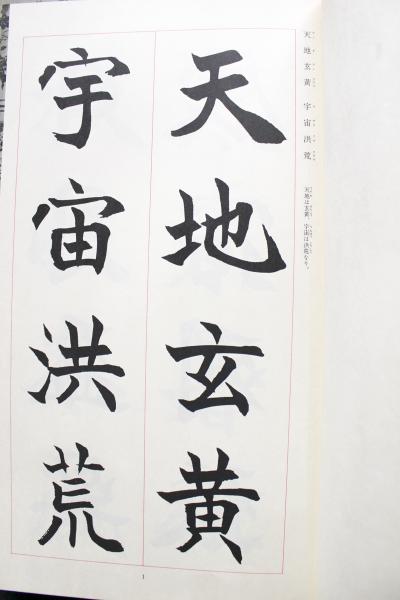 天地玄黄 宇宙洪荒
天地は玄黄、宇宙は洪荒なり。
天地玄黄
宇宙洪荒
1